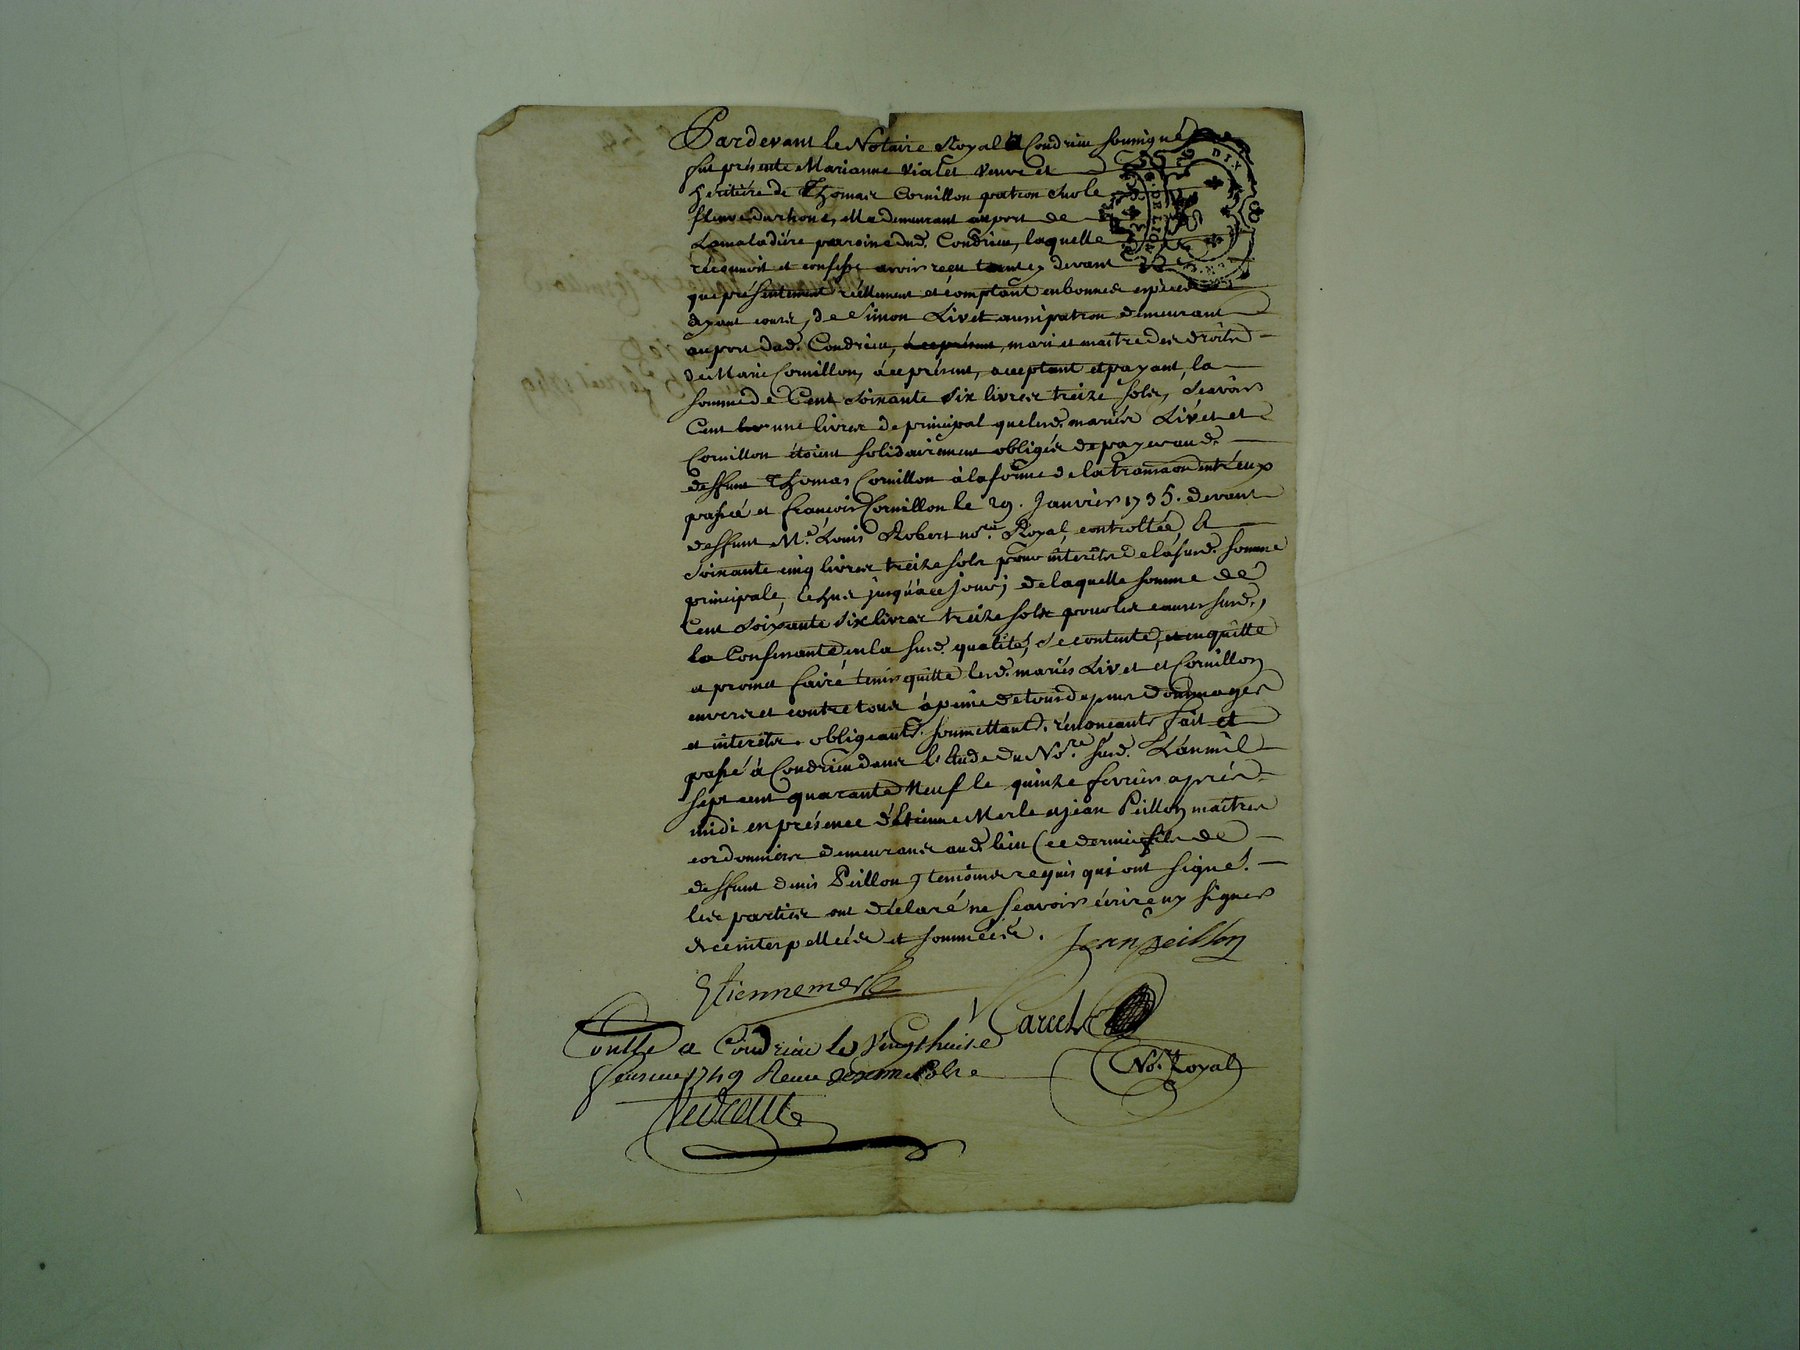 Pardevant le Notaire Royal a Condrieu soussigné
fut présente Marianne Vialet veuve et
héritiére de Thomas Cornillon patron sur le
fleuve du rhone, elle demeurant au port de
Lamaladiére paroisse dud. Condrieu, laquelle
reconnoit et confesse avoir reçu tant cy devant
que présentement réellement et comptant en bonnes espèces
ayant cours, de Simon Livet aussi patron demeurant
au port dud. Condrieu, à ce présent, mari et maitre des droits
de Marie Cornillon, à ce présent, acceptant et payant, la
somme de Cent Soixante Six livres treize sols, Scavoir
Cent une livres de principal que lesd. mariés Livet et
Cornillon étoient solidairement obligés de payer aud.
deffunt Thomas Cornillon à la forme de la transaon entr'eux
passée et François Cornillon le 29. Janvier 1735. devant
deffunt Me. Louis Robert nore. Royal, controllée, &
Soixante cinq livres treize sols pour intérêts de la susd. somme
principale, échus jusqu'à ce jour; de laquelle somme de
Cent Soixante Six livres treize sols pour les causes susd.,
la Confessante en la susd. qualité, se contente, en quitte
et promet faire tenir quitte lesd. mariés Livet et Cornillon
envers et contre tous à peine de tous depens dommages
et interets. obligeants. soumettants. rénonçants. fait et
passé à Condrieu dans l'étude du Nore. susd. L'an mil
sept cent quarante Neuf le quinze fevrier aprés
midi en présence d'Etienne Merle et jean Peillon maitres
cordonniers demeurans aud. lieu (ce dernier fils de
deffunt denis Peillon) temoins requis qui ont signé.
les parties ont déclaré ne scavoir écrire ny signer
de ce interpellées et sommées.
Jean peillon
Etienne merle
Carcel
Contlle a Condrieu le Vingt huit
1749 Receu
No. Royal